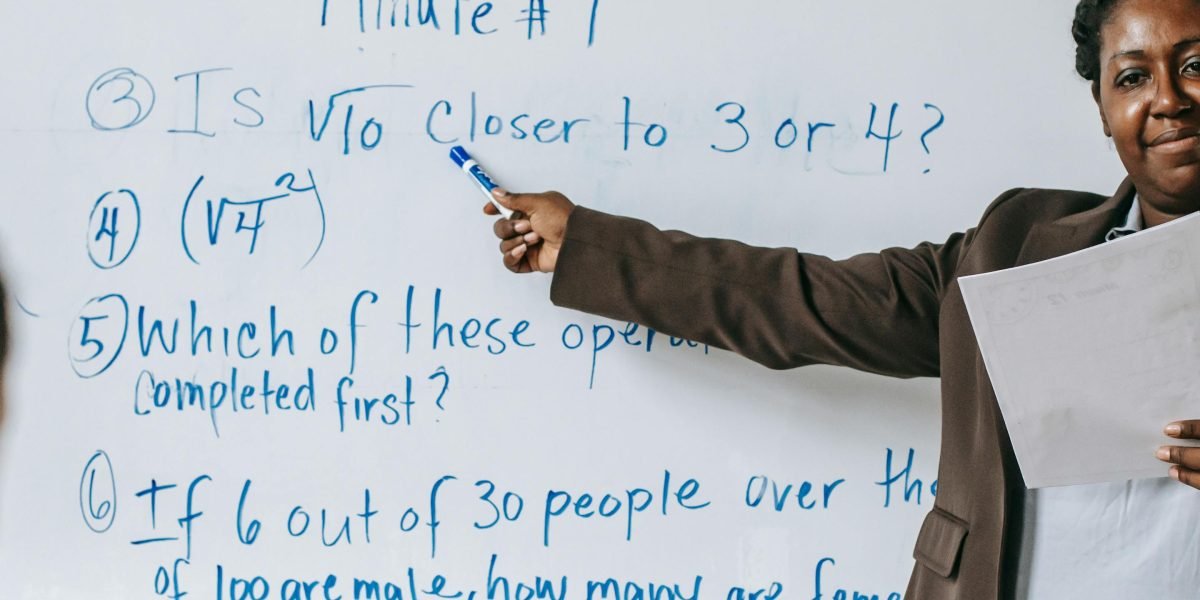 Minute # 1
③ Is √10 closer to 3 or 4?
④ (√4²)
⑤ Which of these
completed first?
⑥ If 6 out of 30 people over the
of 100 are male, how many are